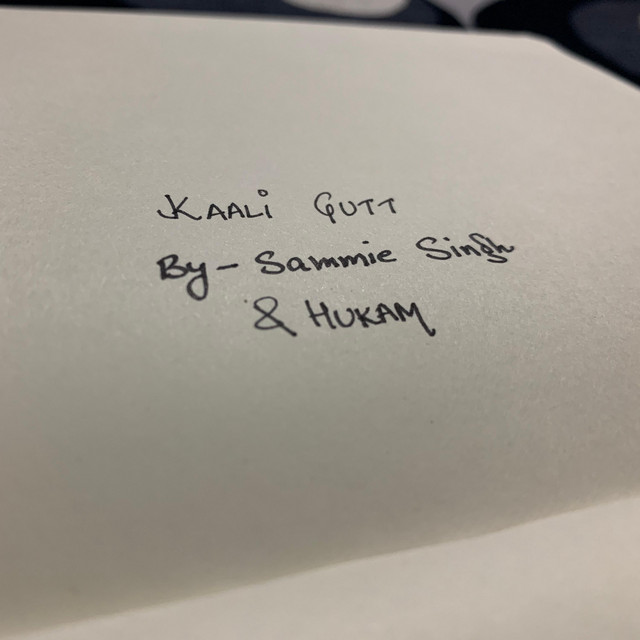 KAALI GUTT
By - Sammie Singh
& HUKAM